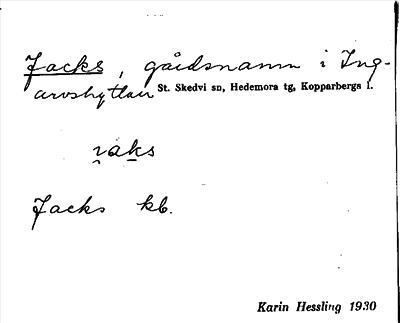 Jacks, gårdsnamn i Ing-
arvshyttan St. Skedvi sn, Hedemora tg, Kopparbergs l.
Jacks kb.
Karin Hessling 1930